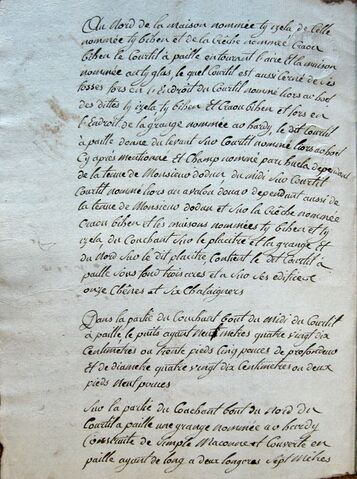 Au Nord de la maison nommée ty izela de Celle
nommée ty bihen et de la Crèche nommée Craou
bihen le Courtil à paille entourant l'aire et la maison
nommée au ty glas, le quel Courtil est aussi Cerné de ses
fossés fors en l'Endroit du Courtil nommé liors ac'hoet
des dittes ty izela, ty bihen et Craou bihen et fors en
l'Endroit de la grange nommée ar hardy, le dit Courtil
à paille donne du levant sur Courtil nommé liors ac'hoet
Cy après mentionné Et Champ nommé parc huela dependant
de la tenue de Monsieur dodun du midi sur Courtil
Courtil nommé liors an avalou douar dependant aussi de
la tenue de Monsieur dodun et sur la Crèche nommée
Craou bihen et les maisons nommées ty bihen et ty
izela, du Couchant sur le placître et la grange et
du Nord sur le dit placître Contient le dit Courtil à
paille sous fond trois cres et a sur ses édifices
onze Chênes et six Chataigners
Dans la partie du Couchant bout du midi du Courtil
à paille le puits ayant Neuf mètres quatre vingt dix
Centimètres ou trente pieds Cinq pouces de profondeur
et de diamètre quatre vingt dix Centimètres ou deux
pieds Neuf pouces
Sur la partie du Couchant bout du Nord du
Courtil à paille une grange nommée ar hardy
Construite de simple Maconne et Couverte en
paille ayant de long a deux longères Sept Mètres